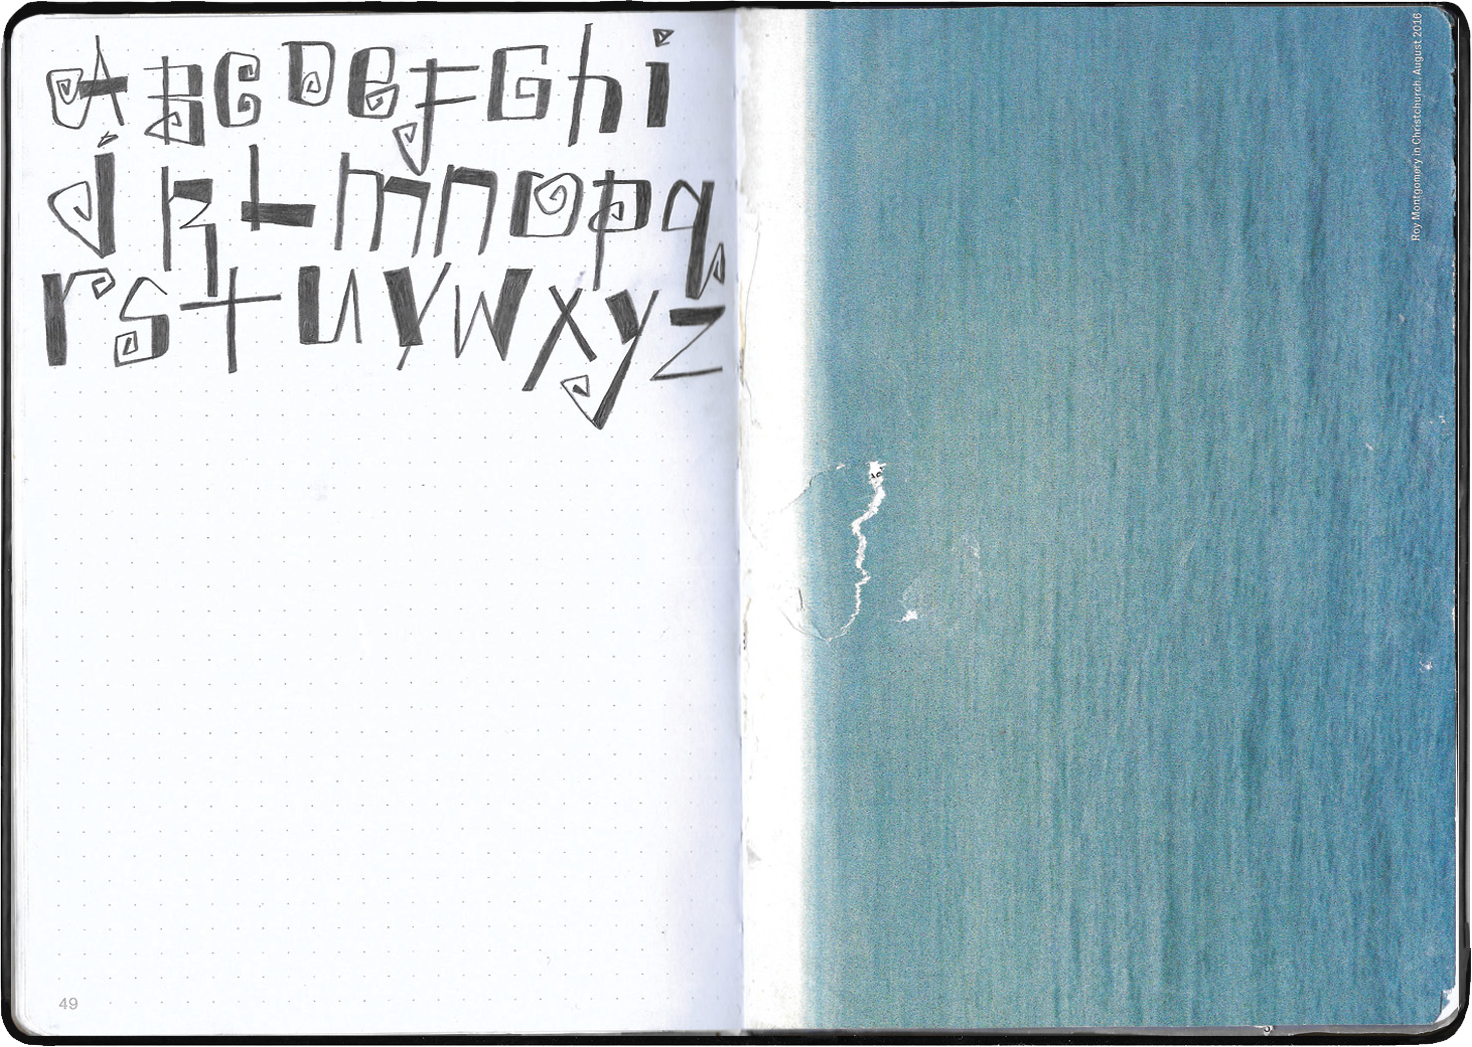 A B C D e f G h i
j k L m n o p q
r s t u v w x y z
49
Roy Montgomery in Christchurch, August 2016